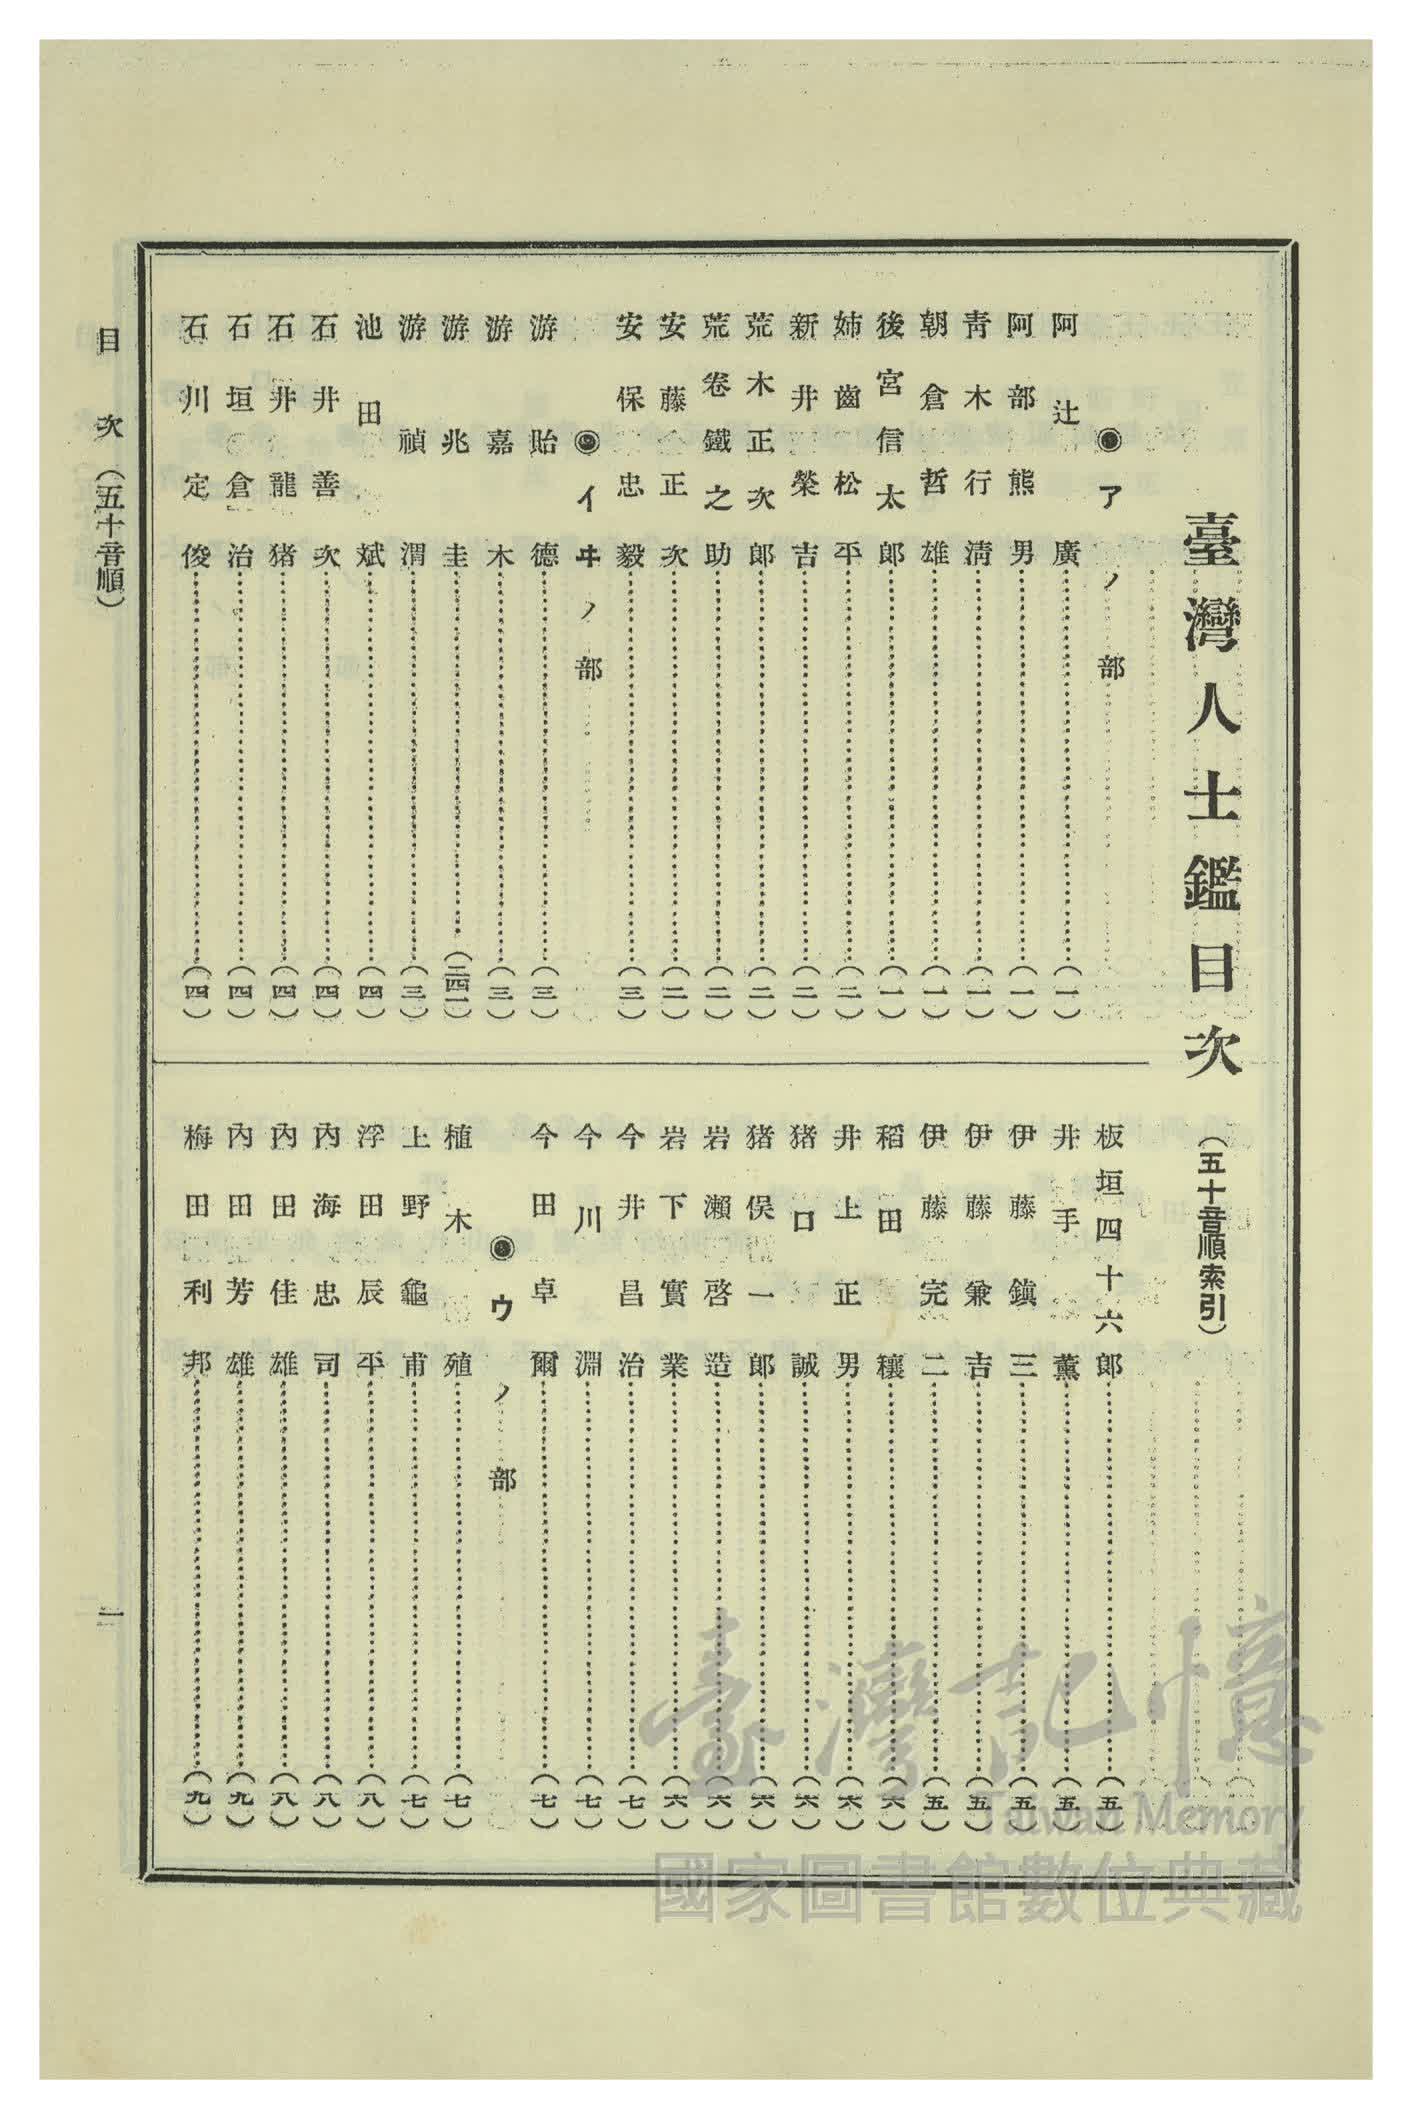 臺灣人士鑑目次（五十音順索引）
◉アノ部
阿辻廣（一）
阿部熊男（一）
靑木行淸（一）
朝倉哲雄（一）
後宮信太郎（一）
姉齒松平（二）
新井榮吉（二）
荒木正次郎（二）
荒卷鐵之助（二）
安藤正次（二）
安保忠毅（三）
◉イヰノ部
游貽德（三）
游嘉木（三）
游兆圭（二四一）
游禎渭（三）
池田斌（四）
石井善次（四）
石井龍猪（四）
石垣倉治（四）
石川定俊（四）
板垣四十六郎（五）
井手薰（五）
伊藤鎭三（五）
伊藤兼吉（五）
伊藤完二（五）
稻田穰（六）
井上正男（六）
猪口誠（六）
猪俣一郎（六）
岩瀨啓造（六）
岩下實業（六）
今井昌治（七）
今川淵（七）
今田卓爾（七）
◉ウノ部
植木殖（七）
上野龜甫（七）
浮田辰平（八）
內海忠司（八）
內田佳雄（八）
內田芳雄（九）
梅田利邦（九）
目次（五十音順）
一
臺灣記憶
Taiwan Memory
國家圖書館數位典藏